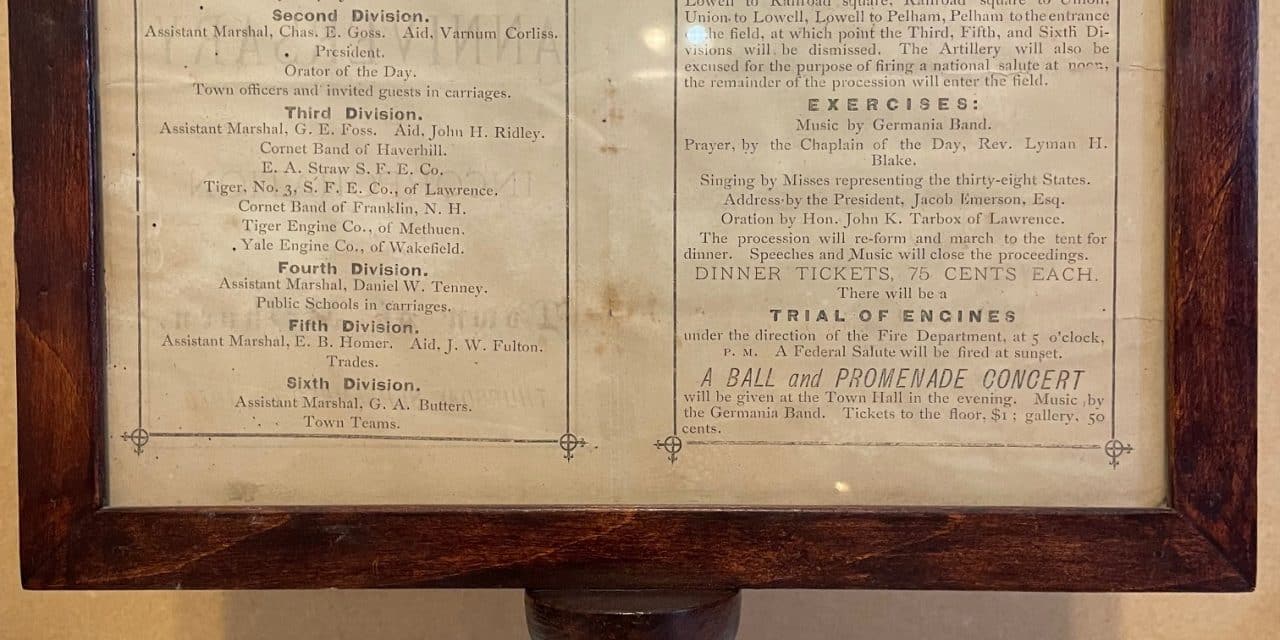 Second Division.
Assistant Marshal, Chas. E. Goss. Aid, Varnum Corliss.
President.
Orator of the Day.
Town officers and invited guests in carriages.
Third Division.
Assistant Marshal, G. E. Foss. Aid, John H. Ridley.
Cornet Band of Haverhill.
E. A. Straw S. F. E. Co.
Tiger, No. 3, S. F. E. Co., of Lawrence.
Cornet Band of Franklin, N. H.
Tiger Engine Co., of Methuen.
Yale Engine Co., of Wakefield.
Fourth Division.
Assistant Marshal, Daniel W. Tenney.
Public Schools in carriages.
Fifth Division.
Assistant Marshal, E. B. Homer. Aid, J. W. Fulton.
Trades.
Sixth Division.
Assistant Marshal, G. A. Butters.
Town Teams.
Lowell to Railroad square, Railroad square to Union,
Union to Lowell, Lowell to Pelham, Pelham to the entrance
the field, at which point the Third, Fifth, and Sixth Di-
visions will be dismissed. The Artillery will also be
excused for the purpose of firing a national salute at noon,
the remainder of the procession will enter the field.
EXERCISES:
Music by Germania Band.
Prayer, by the Chaplain of the Day, Rev. Lyman H.
Blake.
Singing by Misses representing the thirty-eight States.
Address by the President, Jacob Emerson, Esq.
Oration by Hon. John K. Tarbox of Lawrence.
The procession will re-form and march to the tent for
dinner. Speeches and Music will close the proceedings.
DINNER TICKETS, 75 CENTS EACH.
There will be a
TRIAL OF ENGINES
under the direction of the Fire Department, at 5 o'clock,
P. M. A Federal Salute will be fired at sunset.
A BALL and PROMENADE CONCERT
will be given at the Town Hall in the evening. Music by
the Germania Band. Tickets to the floor, $1; gallery, 50
cents.